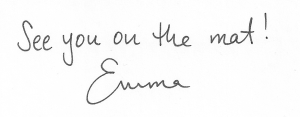 See you on the mat!
Emma